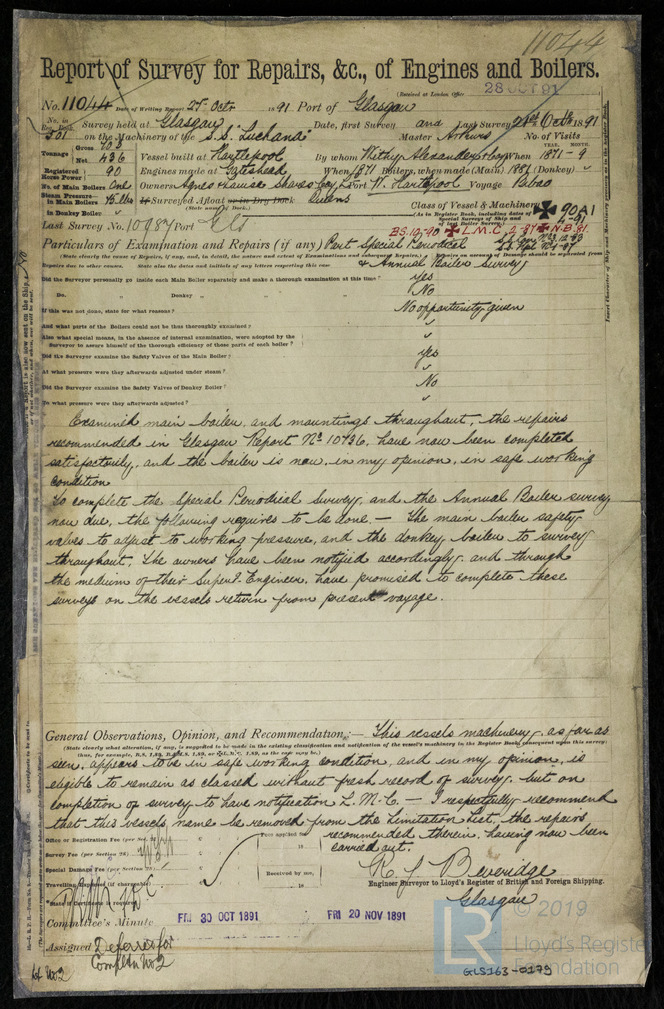 11044
Report of Survey for Repairs, &c., of Engines and Boilers.
(Received at London Office 28 OCT 91
No. 11044 Date of Writing Report 27 Octr 1891 Port of Glasgow
No. in Reg. Book 501 Survey held at Glasgow Date, first Survey and Last Survey 21st Octr 1891
on the Machinery of the S.S. "Luchana" Master No. of Visits
Tonnage Gross 703 Net 436
Vessel built at Hartlepool By whom When YEAR. MONTH. 1871 - 9
Registered Horse Power 90 Engines made at Gateshead When 1871 Boilers, when made (Main) 1881 (Donkey) "
No. of Main Boilers One Owners Port W. Hartlepool Voyage Bilbao
Steam Pressure in Main Boilers 75 lbs If Surveyed Afloat or in Dry Dock Queens
(State name of Dock.)
in Donkey Boiler "
Class of Vessel & Machinery 90A1
(As in Register Book, including dates of Special Surveys of Ship and of last Boiler Survey.)
Last Survey No. 10987 Port Gls
BS.12,90 L.M.C. 2-87 N.B.81
Particulars of Examination and Repairs (if any) Part Special Periodical
& Annual Boiler Survey
Did the Surveyor personally go inside each Main Boiler separately and make a thorough examination at this time? Yes
Do. " Donkey " " " No
If this was not done, state for what reasons? No opportunity given
And what parts of the Boilers could not be thoroughly examined? "
Also what special means, in the absence of internal examination, were adopted by the
Surveyor to assure himself of the thorough efficiency of those parts of each boiler? "
Did the Surveyor examine the Safety Valves of the Main Boiler? Yes
At what pressure were they afterwards adjusted under steam? "
Did the Surveyor examine the Safety Valves of Donkey Boiler? No
To what pressure were they afterwards adjusted? "
Examined main boiler, and mountings throughout, the repairs
recommended in Glasgow Report No 10736, have now been completed
satisfactorily, and the boiler is now, in my opinion, in safe working
condition
To complete the Special Periodical Survey, and the Annual Boiler survey
now due, the following requires to be done. — The main boiler safety
valves to adjust to working pressure, and the donkey boiler to survey
throughout. The owners have been notified accordingly and through
the medium of their Supert. Engineer, have promised to complete these
surveys on the vessels return from present voyage.
General Observations, Opinion, and Recommendation:— This vessels machinery, as far as
(State clearly what alteration, if any, is suggested to be made in the existing classification and notification of the vessel's machinery in the Register Book consequent upon this survey:
seen, appears to be in safe working condition, and in my opinion, is
eligible to remain as classed without fresh record of survey, but on
completion of survey to have notification L.M.C. — I respectfully recommend
that this vessels name be removed from the Limitation List, the repairs
recommended therein, having now been
carried out.
Office or Registration Fee (per Sec. 28)
Survey Fee (per Section 28)
Special Damage Fee (per Section 28)
Travelling Expenses (if chargeable)
Fees applied for
18
Received by me,
18
R. J Beveridge
Engineer Surveyor to Lloyd's Register of British and Foreign Shipping.
Glasgow
Committee's Minute FRI 30 OCT 1891 FRI 20 NOV 1891
Assigned Deferred for
Completn
© 2019
LR
Lloyd's Register
Foundation
GLS163-0179